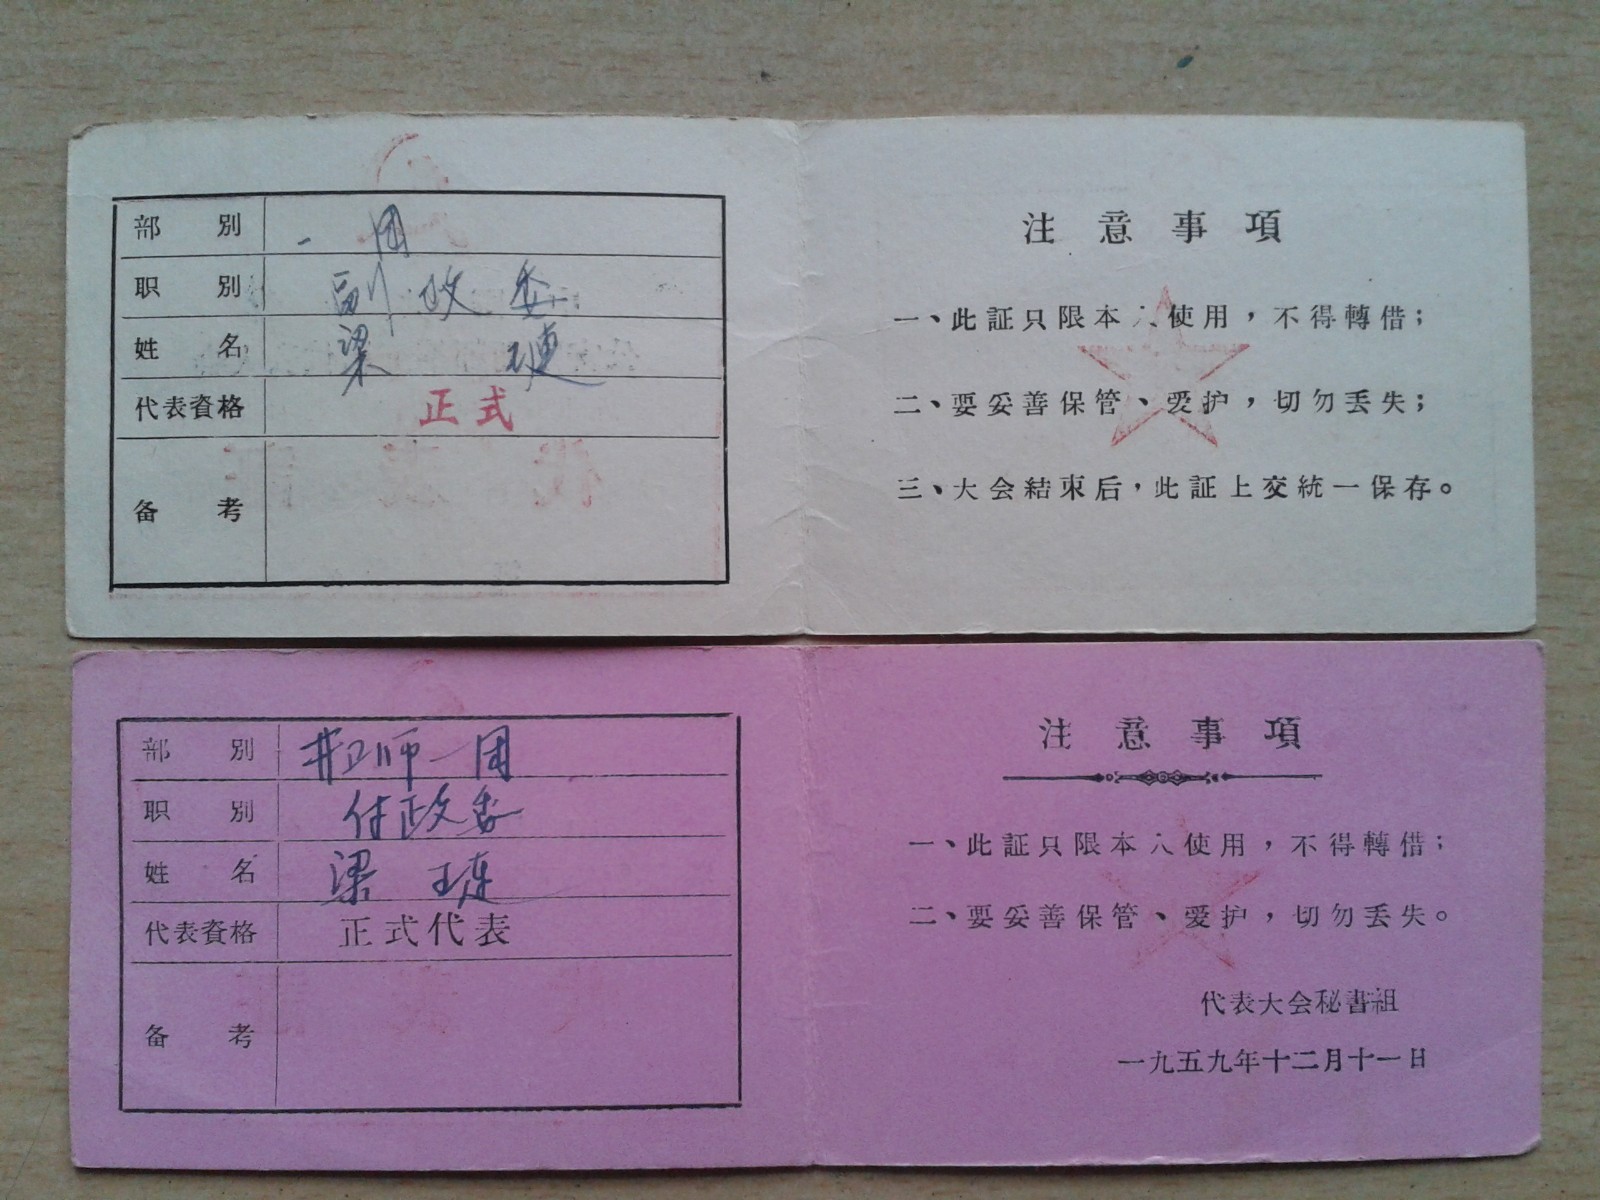 部別 一团
职別 副政委
姓名 梁琏
代表資格 正式
备考
注意事項
一、此証只限本人使用，不得轉借；
二、要妥善保管、爱护，切勿丢失；
三、大会結束后，此証上交統一保存。
部別 师一团
职別 付政委
姓名 梁琏
代表資格 正式代表
备考
注意事項
一、此証只限本人使用，不得轉借；
二、要妥善保管、爱护，切勿丢失。
代表大会秘書組
一九五九年十二月十一日